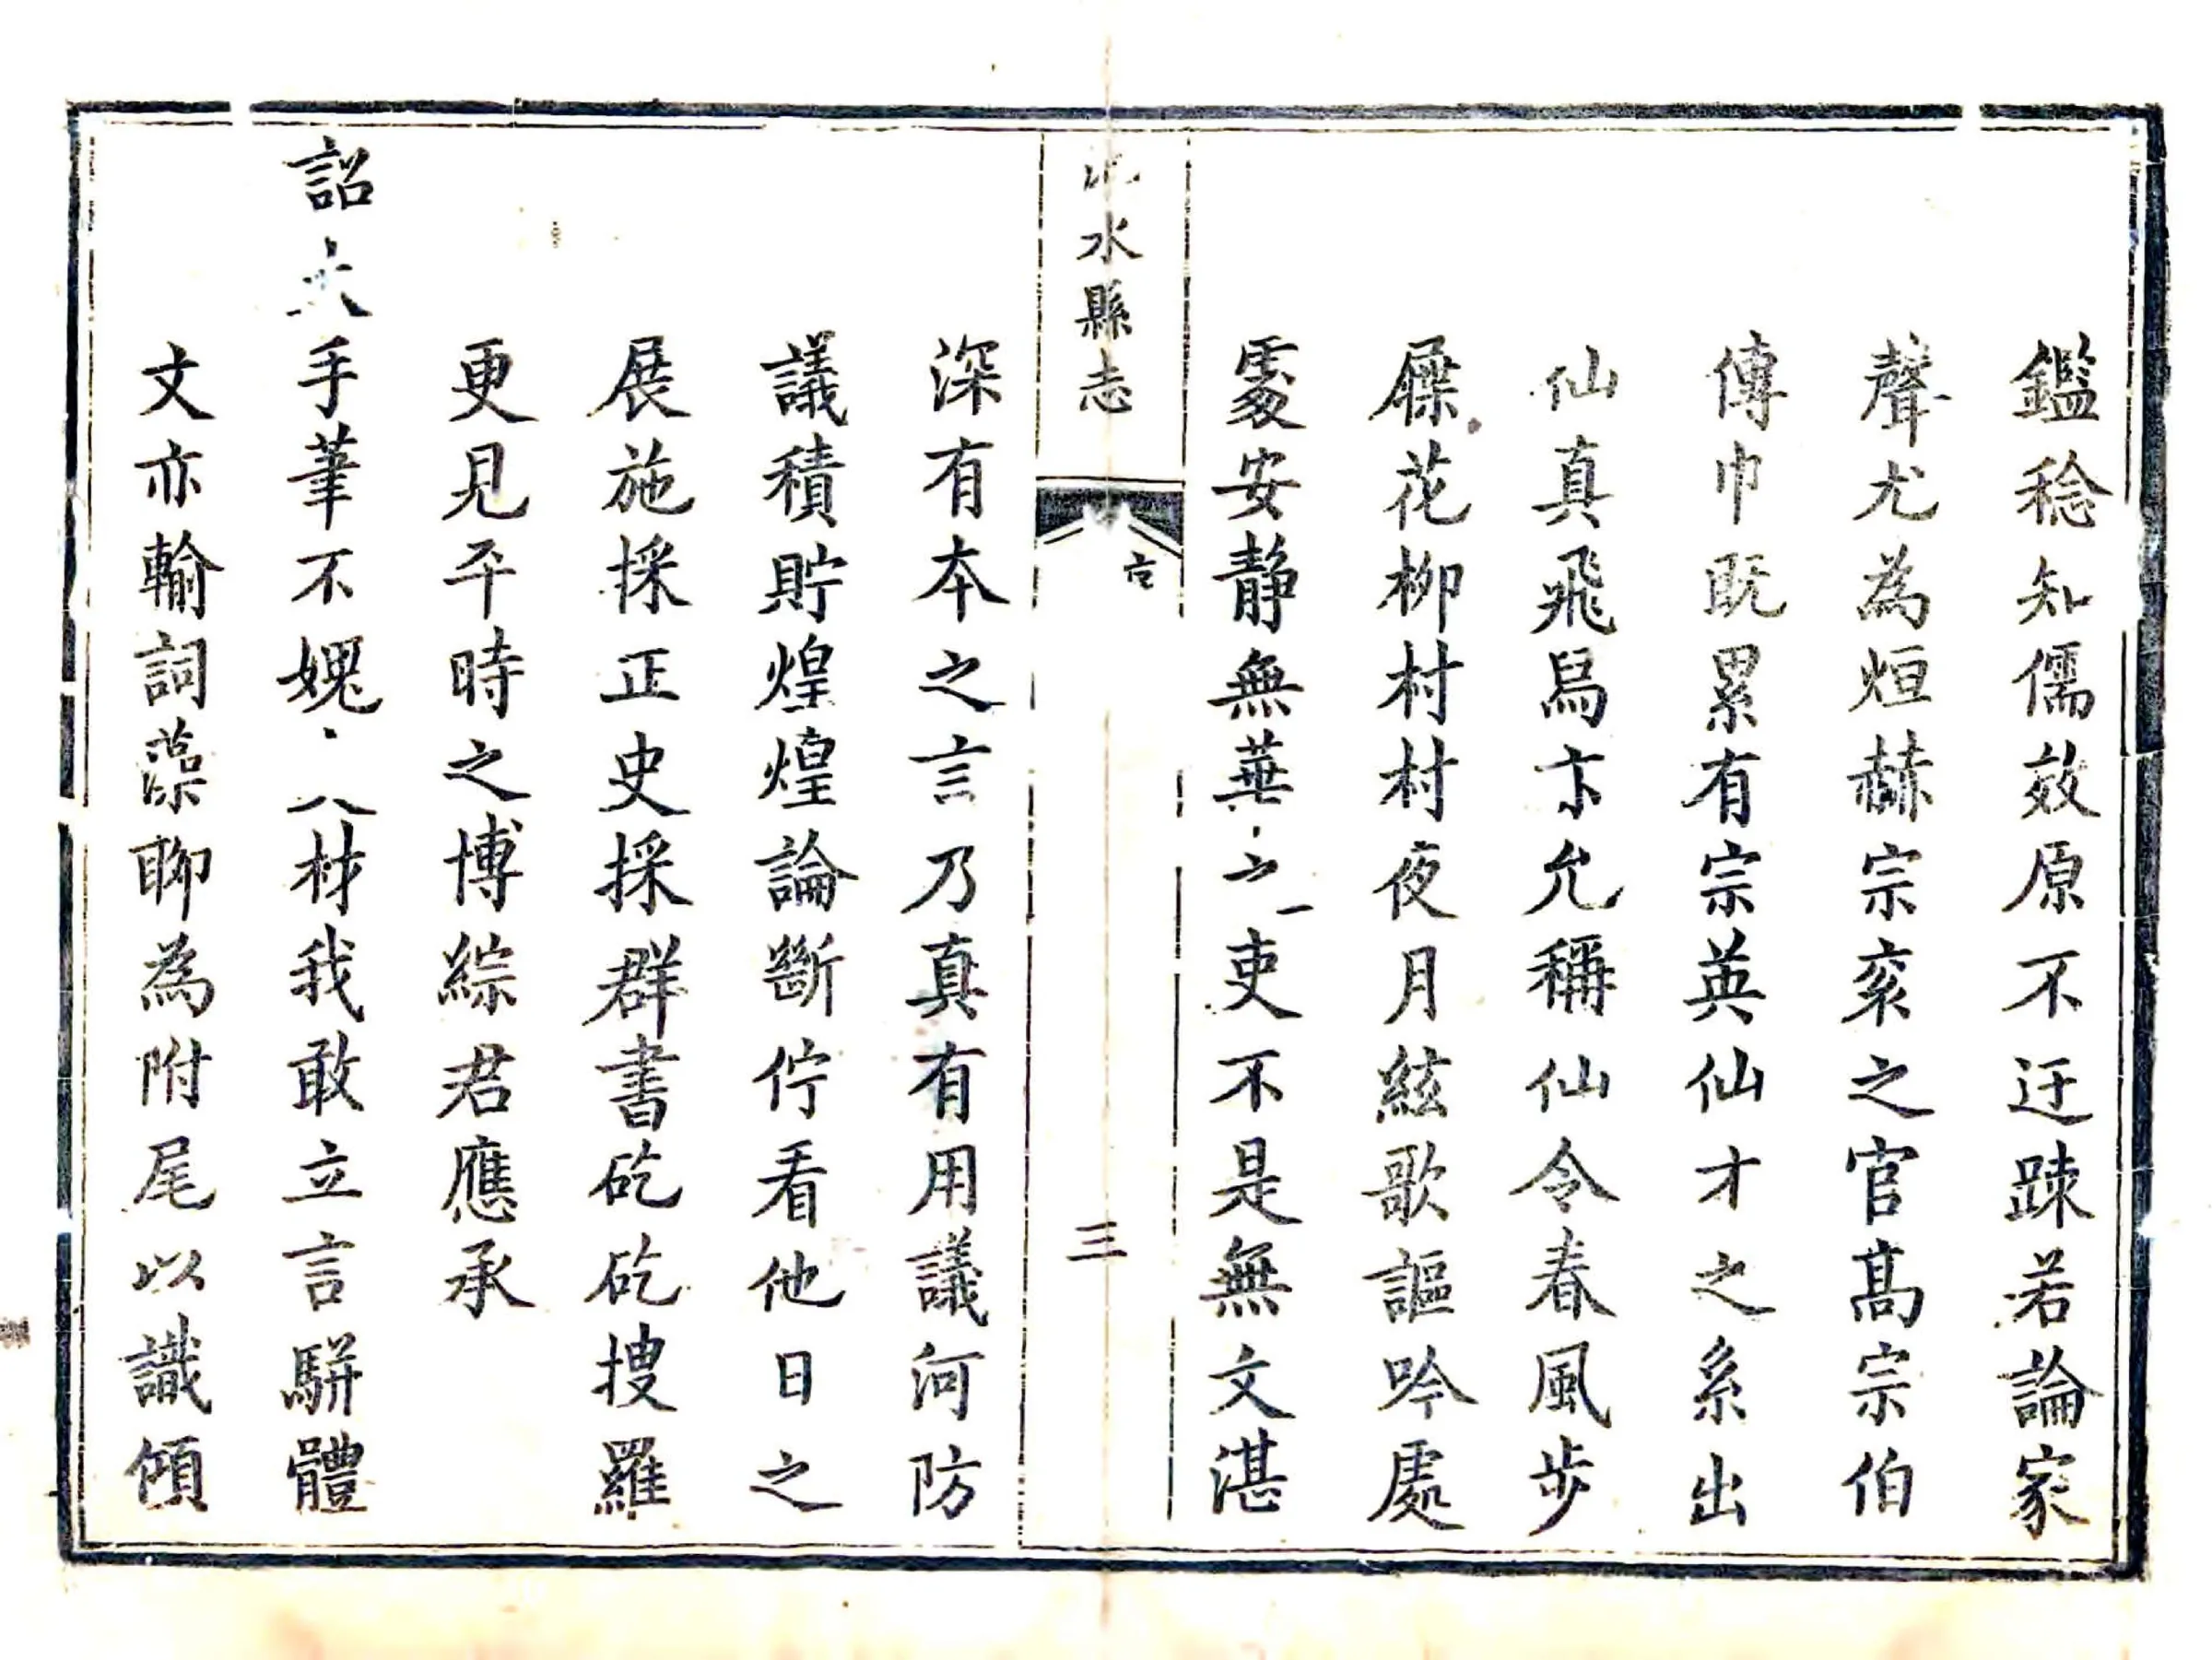 鑑稔知儒效原不迂踈若論家
聲尤為烜赫宗衮之官髙宗伯
傅巾既累有宗英仙才之系出
仙真飛舃卞允稱仙令春風步
屧花柳村村夜月絃歌謳吟處
䖏安静無華之吏不是無文湛
水縣志
三
深有本之言乃真有用議何防
議積貯煌煌論斷佇看他日之
展施採正史採群書矻矻搜羅
更見平時之博綜君應承
詔大手筆不媿材我敢立言駢體
文亦輸詞藻聊為附尾以識傾